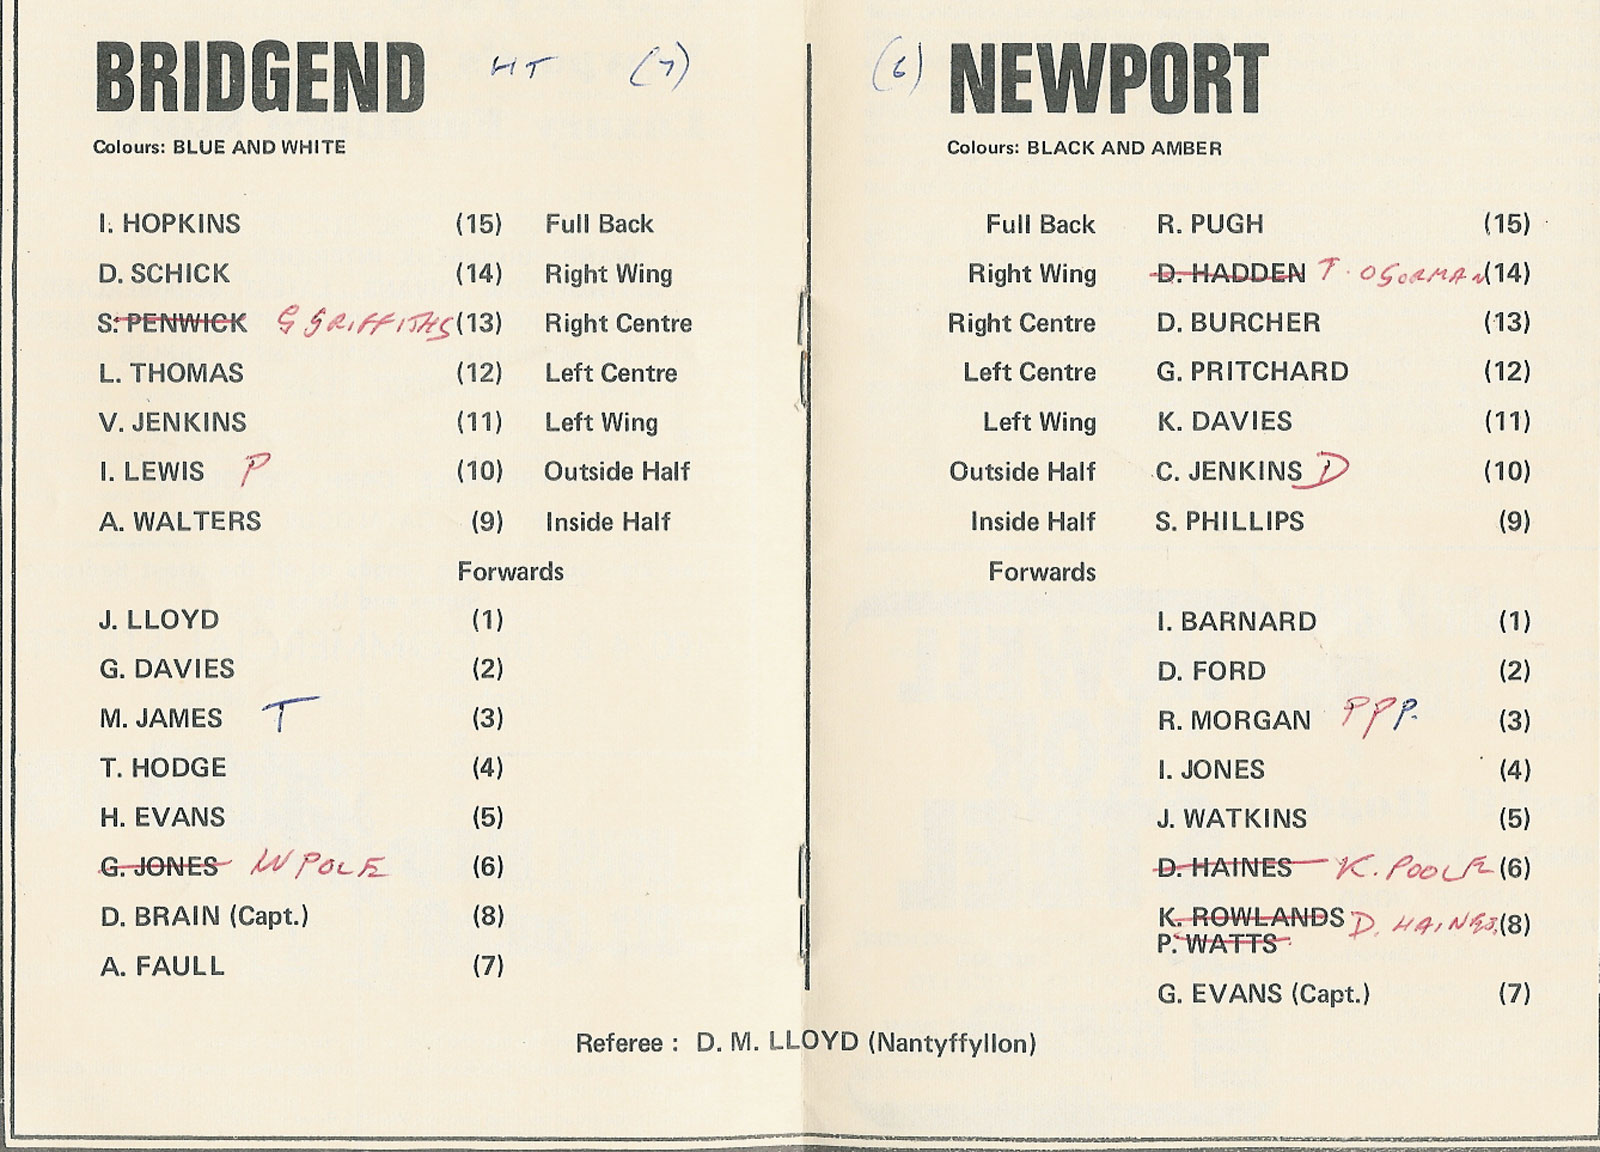 BRIDGEND HT (7)
Colours: BLUE AND WHITE
I. HOPKINS (15) Full Back
D. SCHICK (14) Right Wing
S. PENWICK G GRIFFITHS (13) Right Centre
L. THOMAS (12) Left Centre
V. JENKINS (11) Left Wing
I. LEWIS P (10) Outside Half
A. WALTERS (9) Inside Half
Forwards
J. LLOYD (1)
G. DAVIES (2)
M. JAMES T (3)
T. HODGE (4)
H. EVANS (5)
G. JONES W POLE (6)
D. BRAIN (Capt.) (8)
A. FAULL (7)
(6) NEWPORT
Colours: BLACK AND AMBER
Full Back R. PUGH (15)
Right Wing D. HADDEN T. OGORMAN (14)
Right Centre D. BURCHER (13)
Left Centre G. PRITCHARD (12)
Left Wing K. DAVIES (11)
Outside Half C. JENKINS D (10)
Inside Half S. PHILLIPS (9)
Forwards
I. BARNARD (1)
D. FORD (2)
R. MORGAN PPP. (3)
I. JONES (4)
J. WATKINS (5)
D. HAINES K. POOLE (6)
K. ROWLANDS D. HAINES. (8)
P. WATTS
G. EVANS (Capt.) (7)
Referee : D. M. LLOYD (Nantyffyllon)